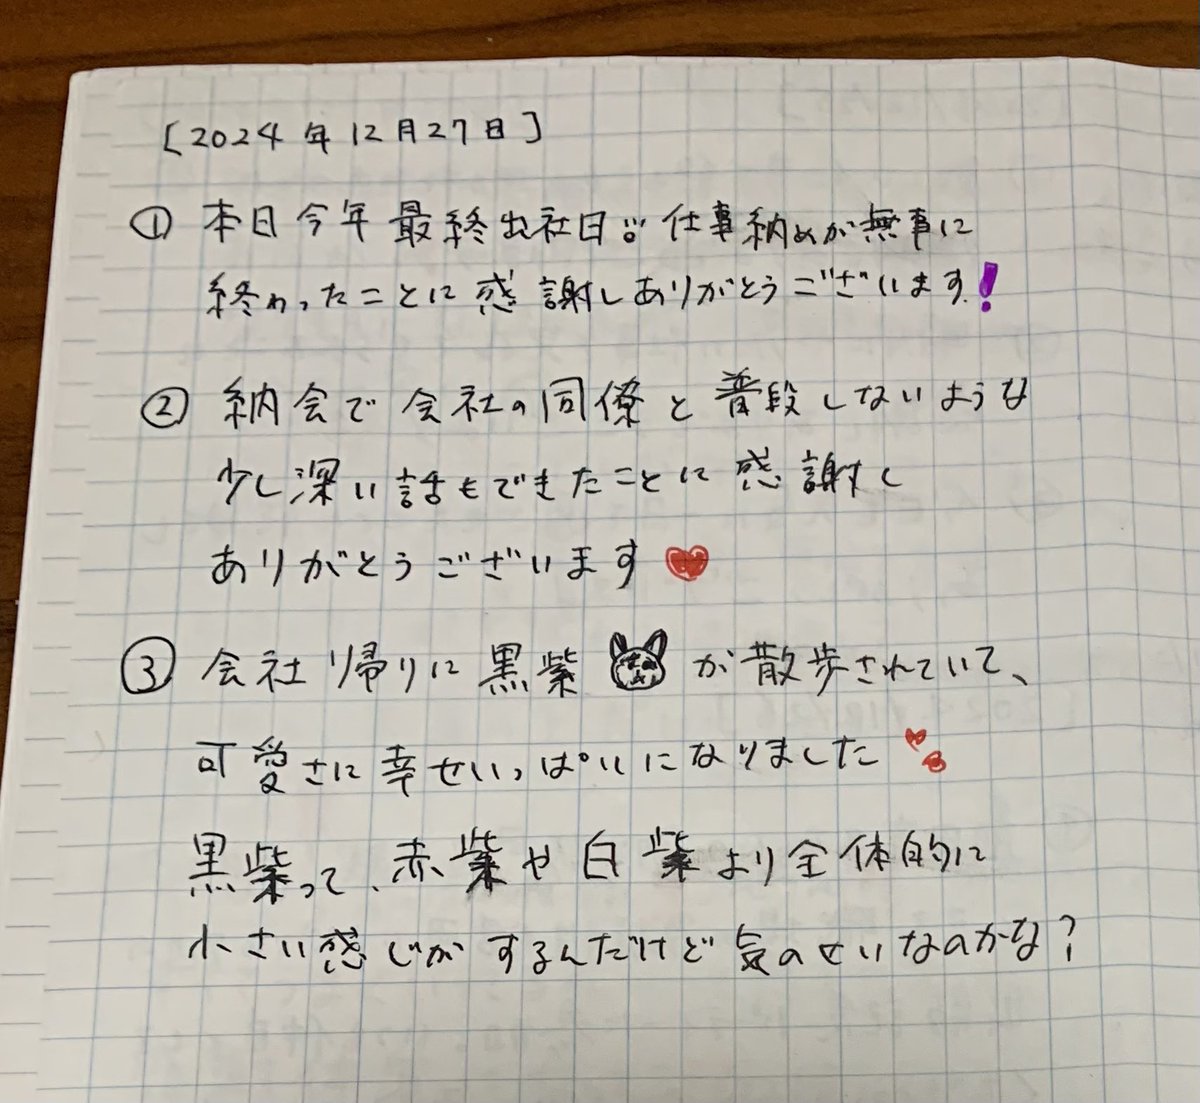 [2024年12月27日]
① 本日今年最終出社日!! 仕事納めが無事に
終わったことに感謝しありがとうございます!
② 納会で会社の同僚と普段しないような
少し深い話もできたことに感謝し
ありがとうございます
③ 会社帰りに黒紫が散歩されていて、
可愛さに幸せいっぱいになりました
黒紫って、赤紫や白紫より全体的に
小さい感じがするんだけど気のせいなのかな?